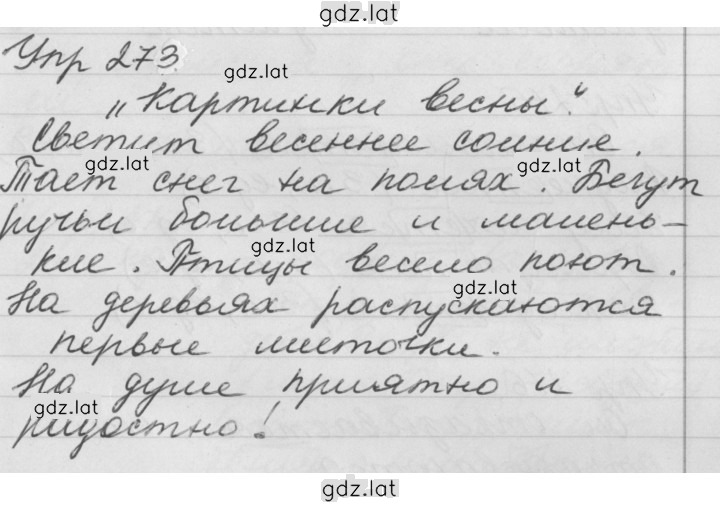 gdz.lat
Упр 273.
gdz.lat
„Картинки весны."
Светит весеннее солнце.
gdz.lat
gdz.lat
Тает снег на полях. Бегут
ручьи большие и малень-
gdz.lat
кие. Птицы весело поют.
gdz.lat
На деревьях распускаются
первые листочки.
На душе приятно и
gdz.lat
радостно!
gdz.lat